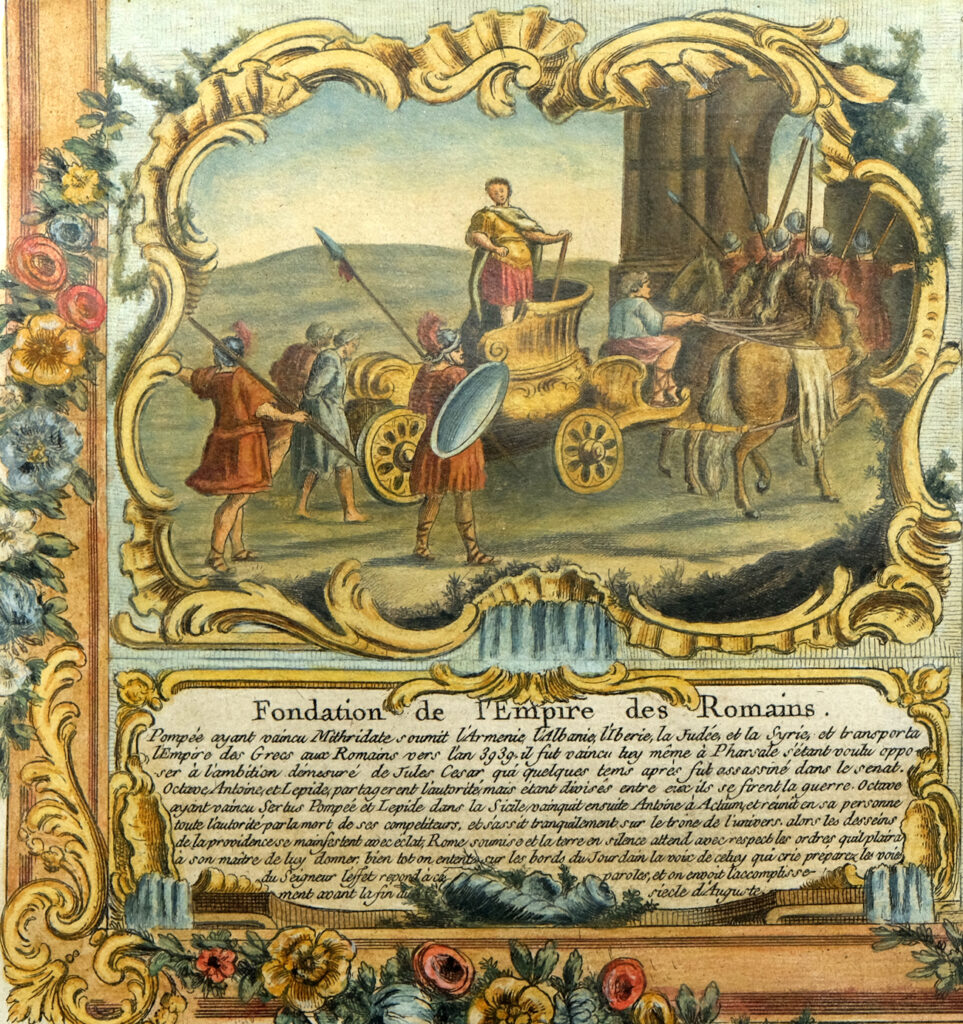 Fondation de l'Empire des Romains.
Pompée ayant vaincu Mithridate soumit l'Armenie, l'Albanie, l'Iberie, la Judée, et la Syrie, et transporta
l'Empire des Grecs aux Romains vers l'an 3939. il fut vaincu luy même à Pharsale s'étant voulu oppo
ser à l'ambition demesuré de Jules Cesar, qui quelques tems après fut assassiné dans le senat.
Octave, Antoine, et Lepide, partagerent l'autorité, mais etant divisés entre eux ils se firent la guerre. Octave
ayant vaincu Sertus Pompée et Lepide dans la Sicile, vainquit ensuite Antoine à Actium, et réunit en sa personne
toute l'autorité par la mort de ses competiteurs, et s'assit tranquilement sur le trône de l'univers. alors les desseins
de la providence se manifestent avec éclat, Rome soumise et la terre en silence attend avec respect les ordres qu'il plaira
à son maître de luy donner, bien tot on entent sur les bords du Jourdain la voix de celuy qui crie preparez les voies
du Seigneur l'effet repond à ce paroles, et on envoit l'accomplisse-
ment avant la fin du siecle d'Auguste.